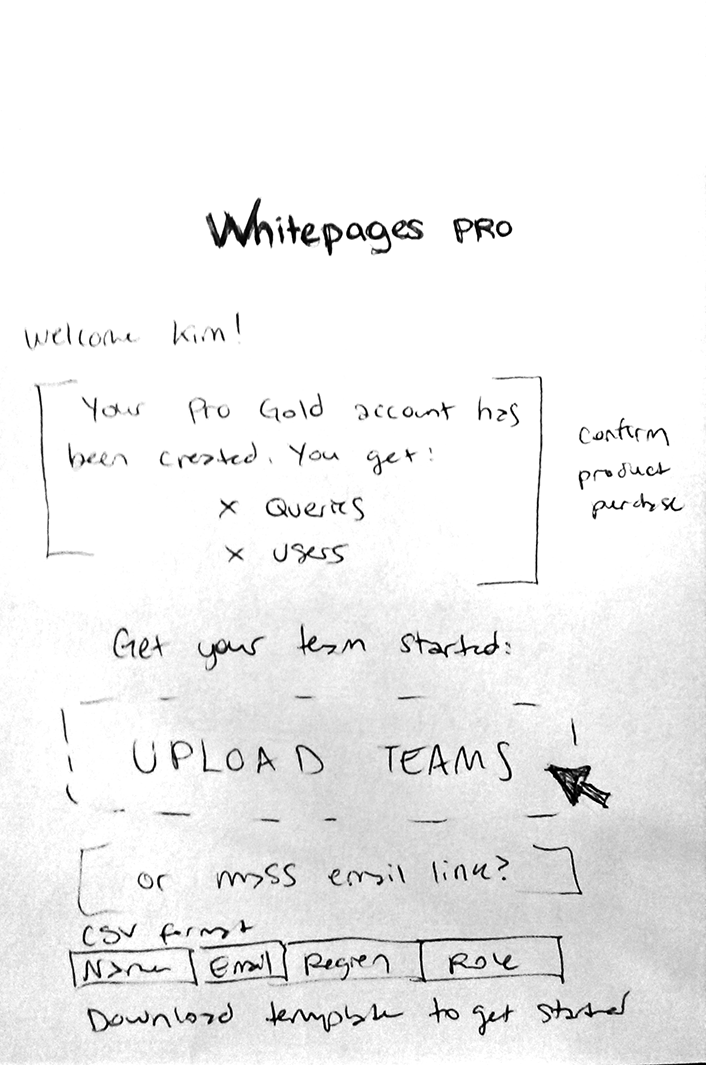 Whitepages PRO
Welcome Kim!
Your Pro Gold account has
been created. You get:
x Queries
x Users
Confirm
product
purchase
Get your team started:
UPLOAD TEAMS
or mass email link?
CSV format
Name Email Region Role
Download template to get started